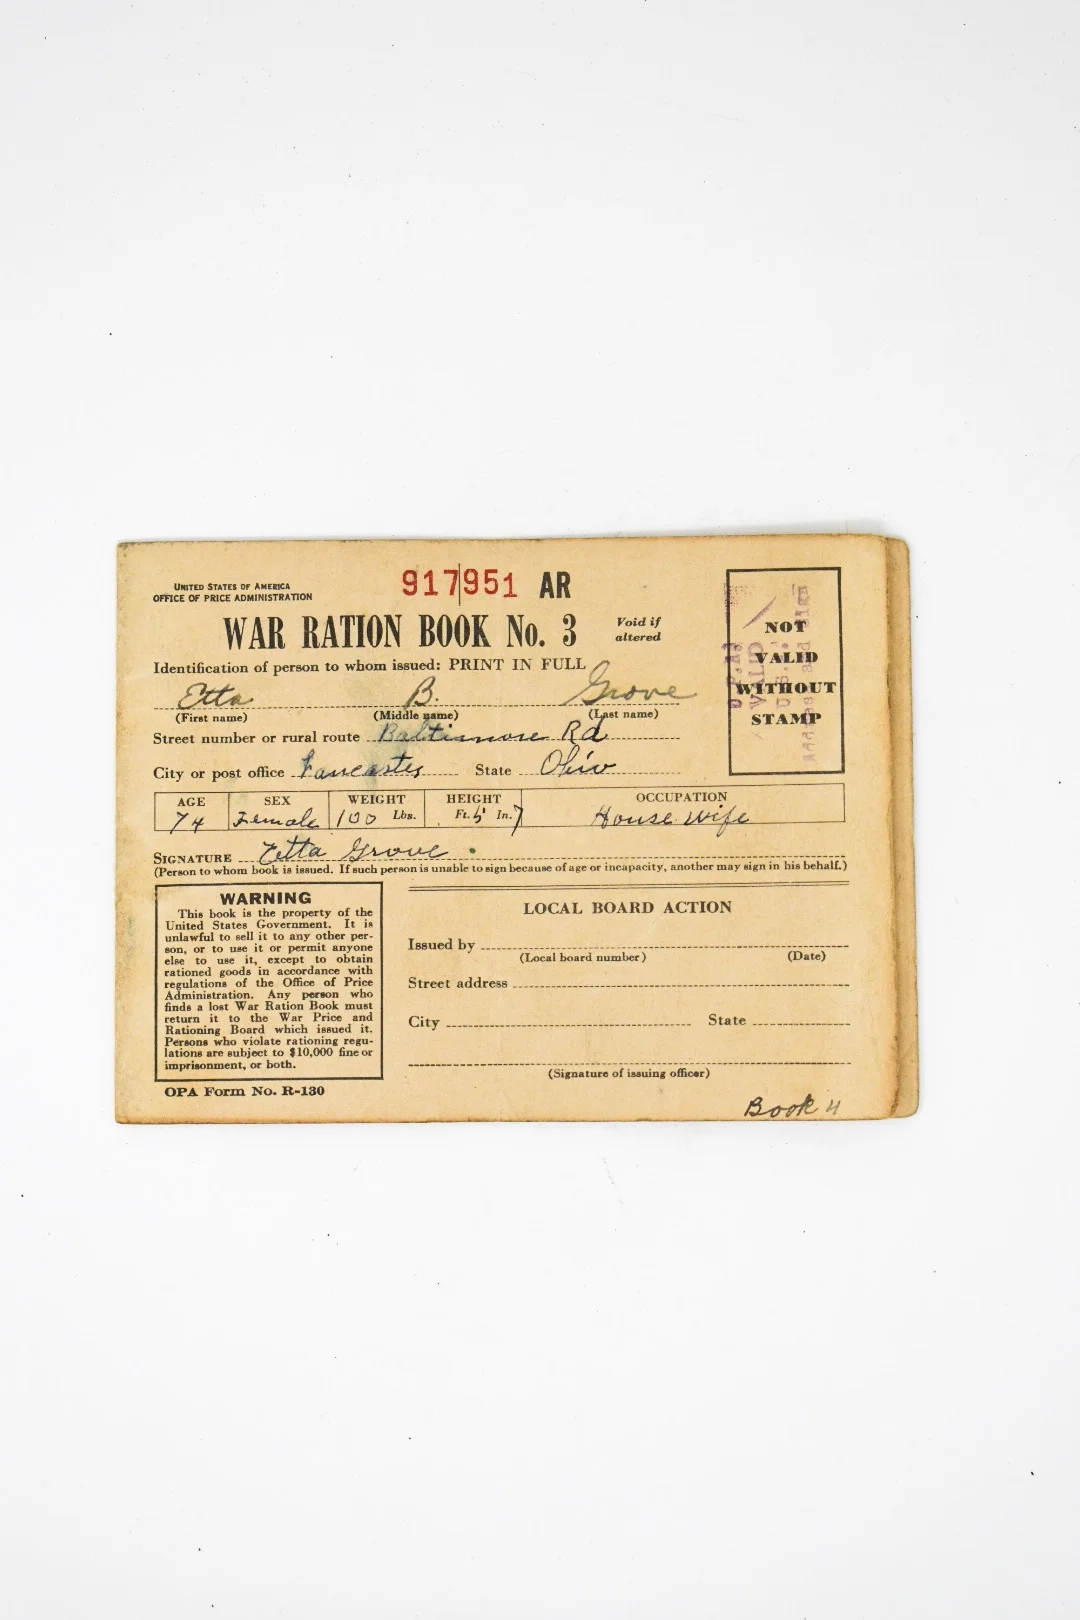 UNITED STATES OF AMERICA
OFFICE OF PRICE ADMINISTRATION
917951 AR
WAR RATION BOOK No. 3
Void if
altered
Identification of person to whom issued: PRINT IN FULL
Etta B. Grove
(First name) (Middle name) (Last name)
Street number or rural route Baltimore Rd
City or post office Lancaster State Ohio
AGE SEX WEIGHT HEIGHT OCCUPATION
74 Female 100 Lbs. Ft. 5 In. 7 House wife
SIGNATURE Etta Grove
(Person to whom book is issued. If such person is unable to sign because of age or incapacity, another may sign in his behalf.)
NOT
VALID
WITHOUT
STAMP
VALID
WARNING
This book is the property of the
United States Government. It is
unlawful to sell it to any other per-
son, or to use it or permit anyone
else to use it, except to obtain
rationed goods in accordance with
regulations of the Office of Price
Administration. Any person who
finds a lost War Ration Book must
return it to the War Price and
Rationing Board which issued it.
Persons who violate rationing regu-
lations are subject to $10,000 fine or
imprisonment, or both.
OPA Form No. R-130
LOCAL BOARD ACTION
Issued by
(Local board number) (Date)
Street address
City State
(Signature of issuing officer)
Book 4